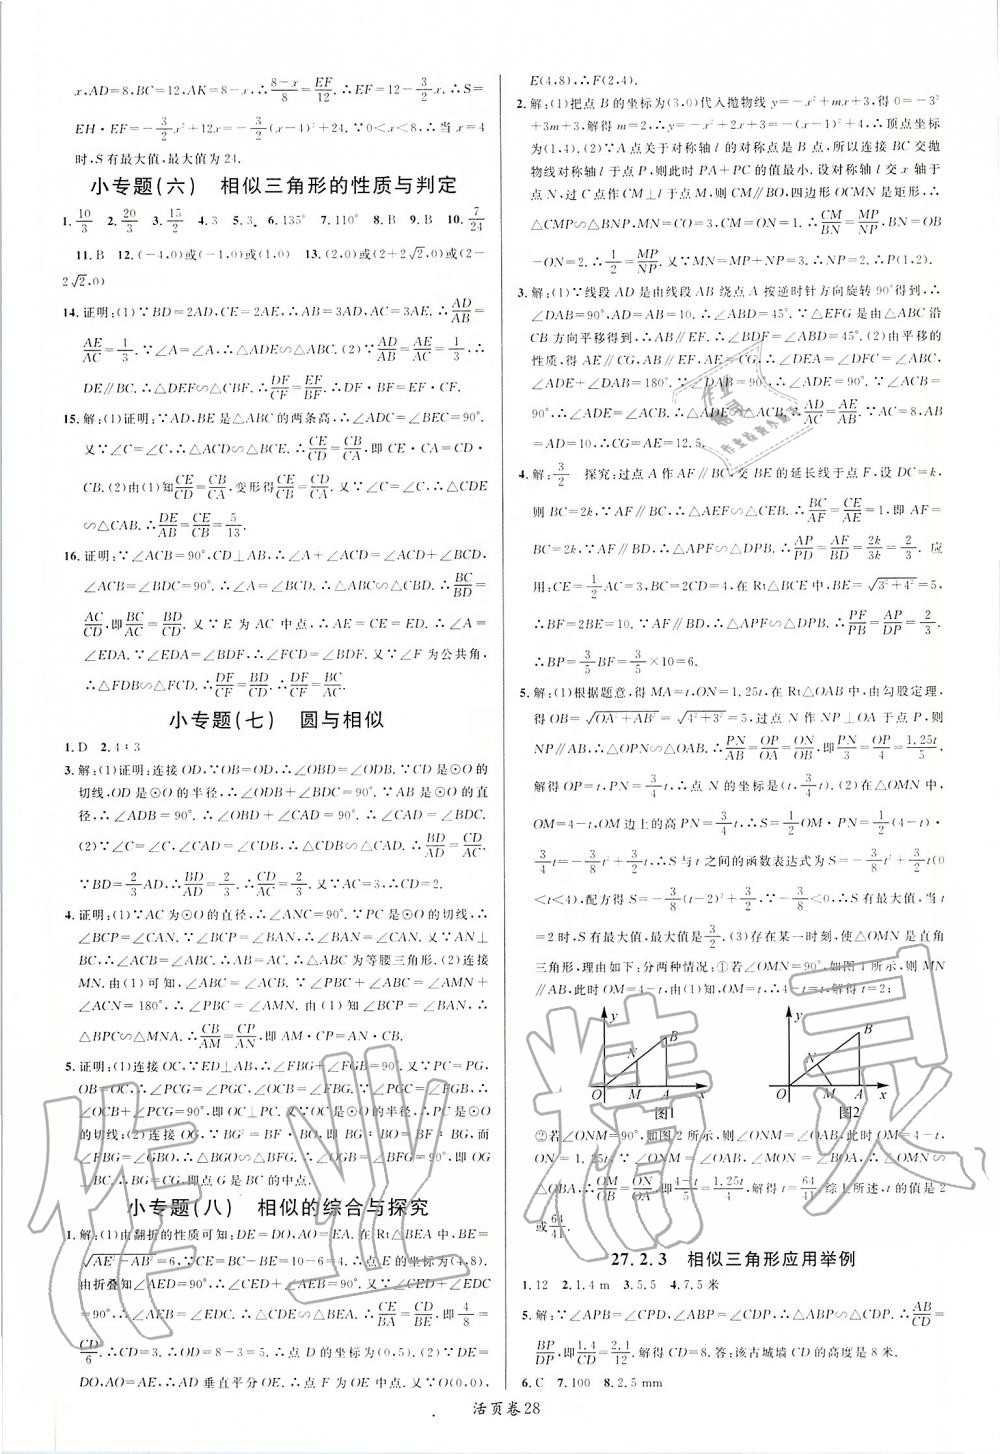 x,AD=8,BC=12,AK=8-x,∴(8-x)/8=EF/12,∴EF=12-(3/2)x.∴S=
EH·EF=-(3/2)x²+12x=-(3/2)(x-4)²+24.∵0<x<8,∴当x=4
时,S有最大值,最大值为24.
小专题(六) 相似三角形的性质与判定
1.10/3 2.20/3 3.15/2 4.3 5.3 6.135° 7.110° 8.B 9.B 10.7/24
11.B 12.(-4,0)或(-1,0)或(1,0) 13.(2,0)或(2+2√2,0)或(2-
2√2,0)
14.证明:(1)∵BD=2AD,CE=2AE,∴AB=3AD,AC=3AE.∴AD/AB=
AE/AC=1/3.∵∠A=∠A,∴△ADE∽△ABC.(2)∵AD/AB=AE/AC=1/3,∴
DE∥BC.∴△DEF∽△CBF.∴DF/CF=EF/BF.∴DF·BF=EF·CF.
15.解:(1)证明:∵AD,BE是△ABC的两条高,∴∠ADC=∠BEC=90°.
又∵∠C=∠C,∴△ACD∽△BCE.∴CE/CD=CB/CA.即CE·CA=CD·
CB.(2)由(1)知CE/CD=CB/CA,变形得CE/CB=CD/CA.又∵∠C=∠C,∴△CDE
∽△CAB.∴DE/AB=CE/CB=5/13.
16.证明:∵∠ACB=90°,CD⊥AB,∴∠A+∠ACD=∠ACD+∠BCD,
∠ACB=∠BDC=90°.∴∠A=∠BCD.∴△ABC∽△CBD.∴BC/BD=
AC/CD,即AC/BC=CD/BD.又∵E为AC中点,∴AE=CE=ED.∴∠A=
∠EDA.∵∠EDA=∠BDF,∴∠FCD=∠BDF.又∵∠F为公共角,
∴△FDB∽△FCD.∴DF/CF=BD/CD.∴DF/CF=BC/AC.
小专题(七) 圆与相似
1.D 2.4∶3
3.解:(1)证明:连接OD,∵OB=OD,∴∠OBD=∠ODB.∵CD是⊙O的
切线,OD是⊙O的半径,∴∠ODB+∠BDC=90°.∵AB是⊙O的直
径,∴∠ADB=90°.∴∠OBD+∠CAD=90°.∴∠CAD=∠BDC.
(2)∵∠C=∠C,∠CAD=∠CDB,∴△CDB∽△CAD.∴BD/AD=CD/AC.
∵BD=(2/3)AD,∴BD/AD=2/3.∴CD/AC=2/3.∵AC=3,∴CD=2.
4.证明:(1)∵AC为⊙O的直径,∴∠ANC=90°.∵PC是⊙O的切线,
∴∠BCP=∠CAN.∵∠BCP=∠BAN,∴∠BAN=∠CAN.又∵AN⊥
BC,∴∠ABC=∠ACB.∴AB=AC.∴△ABC为等腰三角形.(2)连接
MN.由(1)可知,∠ABC=∠ACB.∵∠PBC+∠ABC=∠AMN+
∠ACN=180°,∴∠PBC=∠AMN.由(1)知∠BCP=∠BAN,
∴△BPC∽△MNA.∴CB/AM=CP/AN,即AM·CP=AN·CB.
5.证明:(1)连接OC,∵ED⊥AB,∴∠FBG+∠BFG=90°.又∵PC=PG,
∴∠PCG=∠PGC.∵OC=
OB=OC,∴∠OCB=∠FBG.又∵∠BGF=∠PGC,∴
∠OCB+∠PCG=90°,即OC⊥PC.又∵OC是⊙O的半径,∴PC是⊙O
的切线;(2)连接OG.∵BG²=BF·BO,即BG∶BO=BF∶BG.又∵
∠FBG=∠GBO,∴△BGO∽△BFG.∴∠OGB=∠BFG=90°.即OG⊥
BC.∴BG=CG,即点G是BC的中点.
小专题(八) 相似的综合与探究
1.解:(1)由翻折的性质可知:DE=DO,AO=AE.在Rt△BEA中,BE=
√(AE²-AB²)=6,∴CE=BC-BE=10-6=4,∴E的坐标为(4,8).
由折叠知∠AED=90°,∴∠CED+∠AEB=90°.又∵∠CED+∠EDC
=90°,∴∠AEB=∠EDC.∴△CDE∽△BEA.∴CE/BA=CD/BE,即4/8=
CD/6.∴CD=3.∴OD=8-3=5.∴点D的坐标为(0,5).(2)∵DE=
DO,AO=AE,∴AD垂直平分OE.∴点F为OE中点.又∵O(0,0),
E(4,8),∴F(2,4).
2.解:(1)把点B的坐标为(3,0)代入抛物线y=-x²+mx+3,得0=-3²
+3m+3,解得m=2,∴y=-x²+2x+3=-(x-1)²+4,∴顶点坐标
为(1,4).(2)∵A点关于对称轴l的对称点是B点,所以连接BC交抛
物线对称轴l于点P,则此时PA+PC的值最小.设对称轴交x轴于
点N,过点C作CM⊥l于点M,则CM∥BO,四边形OCMN是矩形,∴
△CMP∽△BNP,MN=CO=3,CM=ON=1.∴CM/BN=MP/NP,BN=OB
-ON=2.∴1/2=MP/NP.又∵MN=MP+NP=3,∴NP=2.∴P(1,2).
3.解:(1)∵线段AD是由线段AB绕点A按逆时针方向旋转90°得到,∴
∠DAB=90°,AD=AB=10.∴∠ABD=45°.∵△EFG是由△ABC沿
CB方向平移得到,∴AB∥EF.∴∠BDF=∠ABD=45°.(2)由平移的
性质,得AE∥CG,AB∥EF,AE=CG.∴∠DEA=∠DFC=∠ABC,
∠ADE+∠DAB=180°.∵∠DAB=90°,∴∠ADE=90°.∵∠ACB=
90°,∴∠ADE=∠ACB.∴△ADE∽△ACB.∴AD/AC=AE/AB.∵AC=8,AB
=AD=10,∴AE=12.5,∴CG=AE=12.5.
4.解:3/2 探究:过点A作AF∥BC,交BE的延长线于点F,设DC=k,
则BC=2k,∵AF∥BC,∴△AEF∽△CEB.∴BC/AF=CE/AE=1,即AF=
BC=2k.∵AF∥BC,∴△APF∽△DPB.∴AP/PD=AF/BD=2k/3k=2/3. 应
用:CE=(1/2)AC=3,BC=2CD=4,在Rt△BCE中,BE=√(3²+4²)=5,
∴BF=2BE=10.∵AF∥BC,∴△APF∽△DPB,∴PF/PB=AP/DP=2/3.
∴BP=(3/5)BF=(3/5)×10=6.
5.解:(1)根据题意,得MA=t,ON=1.25t,在Rt△OAB中,由勾股定理,
得OB=√(OA²+AB²)=√(4²+3²)=5.过点N作NP⊥OA于点P,则
NP∥AB,∴△OPN∽△OAB.∴PN/AB=OP/OA=ON/OB,即PN/3=OP/4=1.25t/5.
解得OP=t,PN=(3/4)t,∴点N的坐标是(t,(3/4)t).(2)在△OMN中,
OM=4-t,OM边上的高PN=(3/4)t,∴S=(1/2)OM·PN=(1/2)(4-t)·
(3/4)t=-(3/8)t²+(3/2)t.∴S与t之间的函数表达式为S=-(3/8)t²+(3/2)t(0
<t<4),配方得S=-(3/8)(t-2)²+3/2.∵-3/8<0,∴S有最大值,当t
=2时,S有最大值,最大值是3/2.(3)存在某一时刻,使△OMN是直角
三角形,理由如下:分两种情况:①若∠OMN=90°,如图1所示,则MN
∥AB,此时OM=4-t,解得t=2;
y B N O M A x 图1
y B N O M A x 图2
②若∠ONM=90°,如图2所示,则∠ONM=∠OAB,此时OM=4-t,
ON=1.25t.∴OM/OB=ON/OA,即(4-t)/5=1.25t/4.解得t=64/41.综上所述,t的值是2
或64/41.
27.2.3 相似三角形应用举例
1.12 2.1.4 m 3.5.5 4.7.5米
5.解:∵∠APB=∠CPD,∠ABP=∠CDP,∴△ABP∽△CDP.∴AB/CD=
BP/DP,即1.4/CD=2.1/12.解得CD=8.答:该古城墙CD的高度是8米.
6.C 7.100 8.2.5 mm
活页卷28
作业精灵